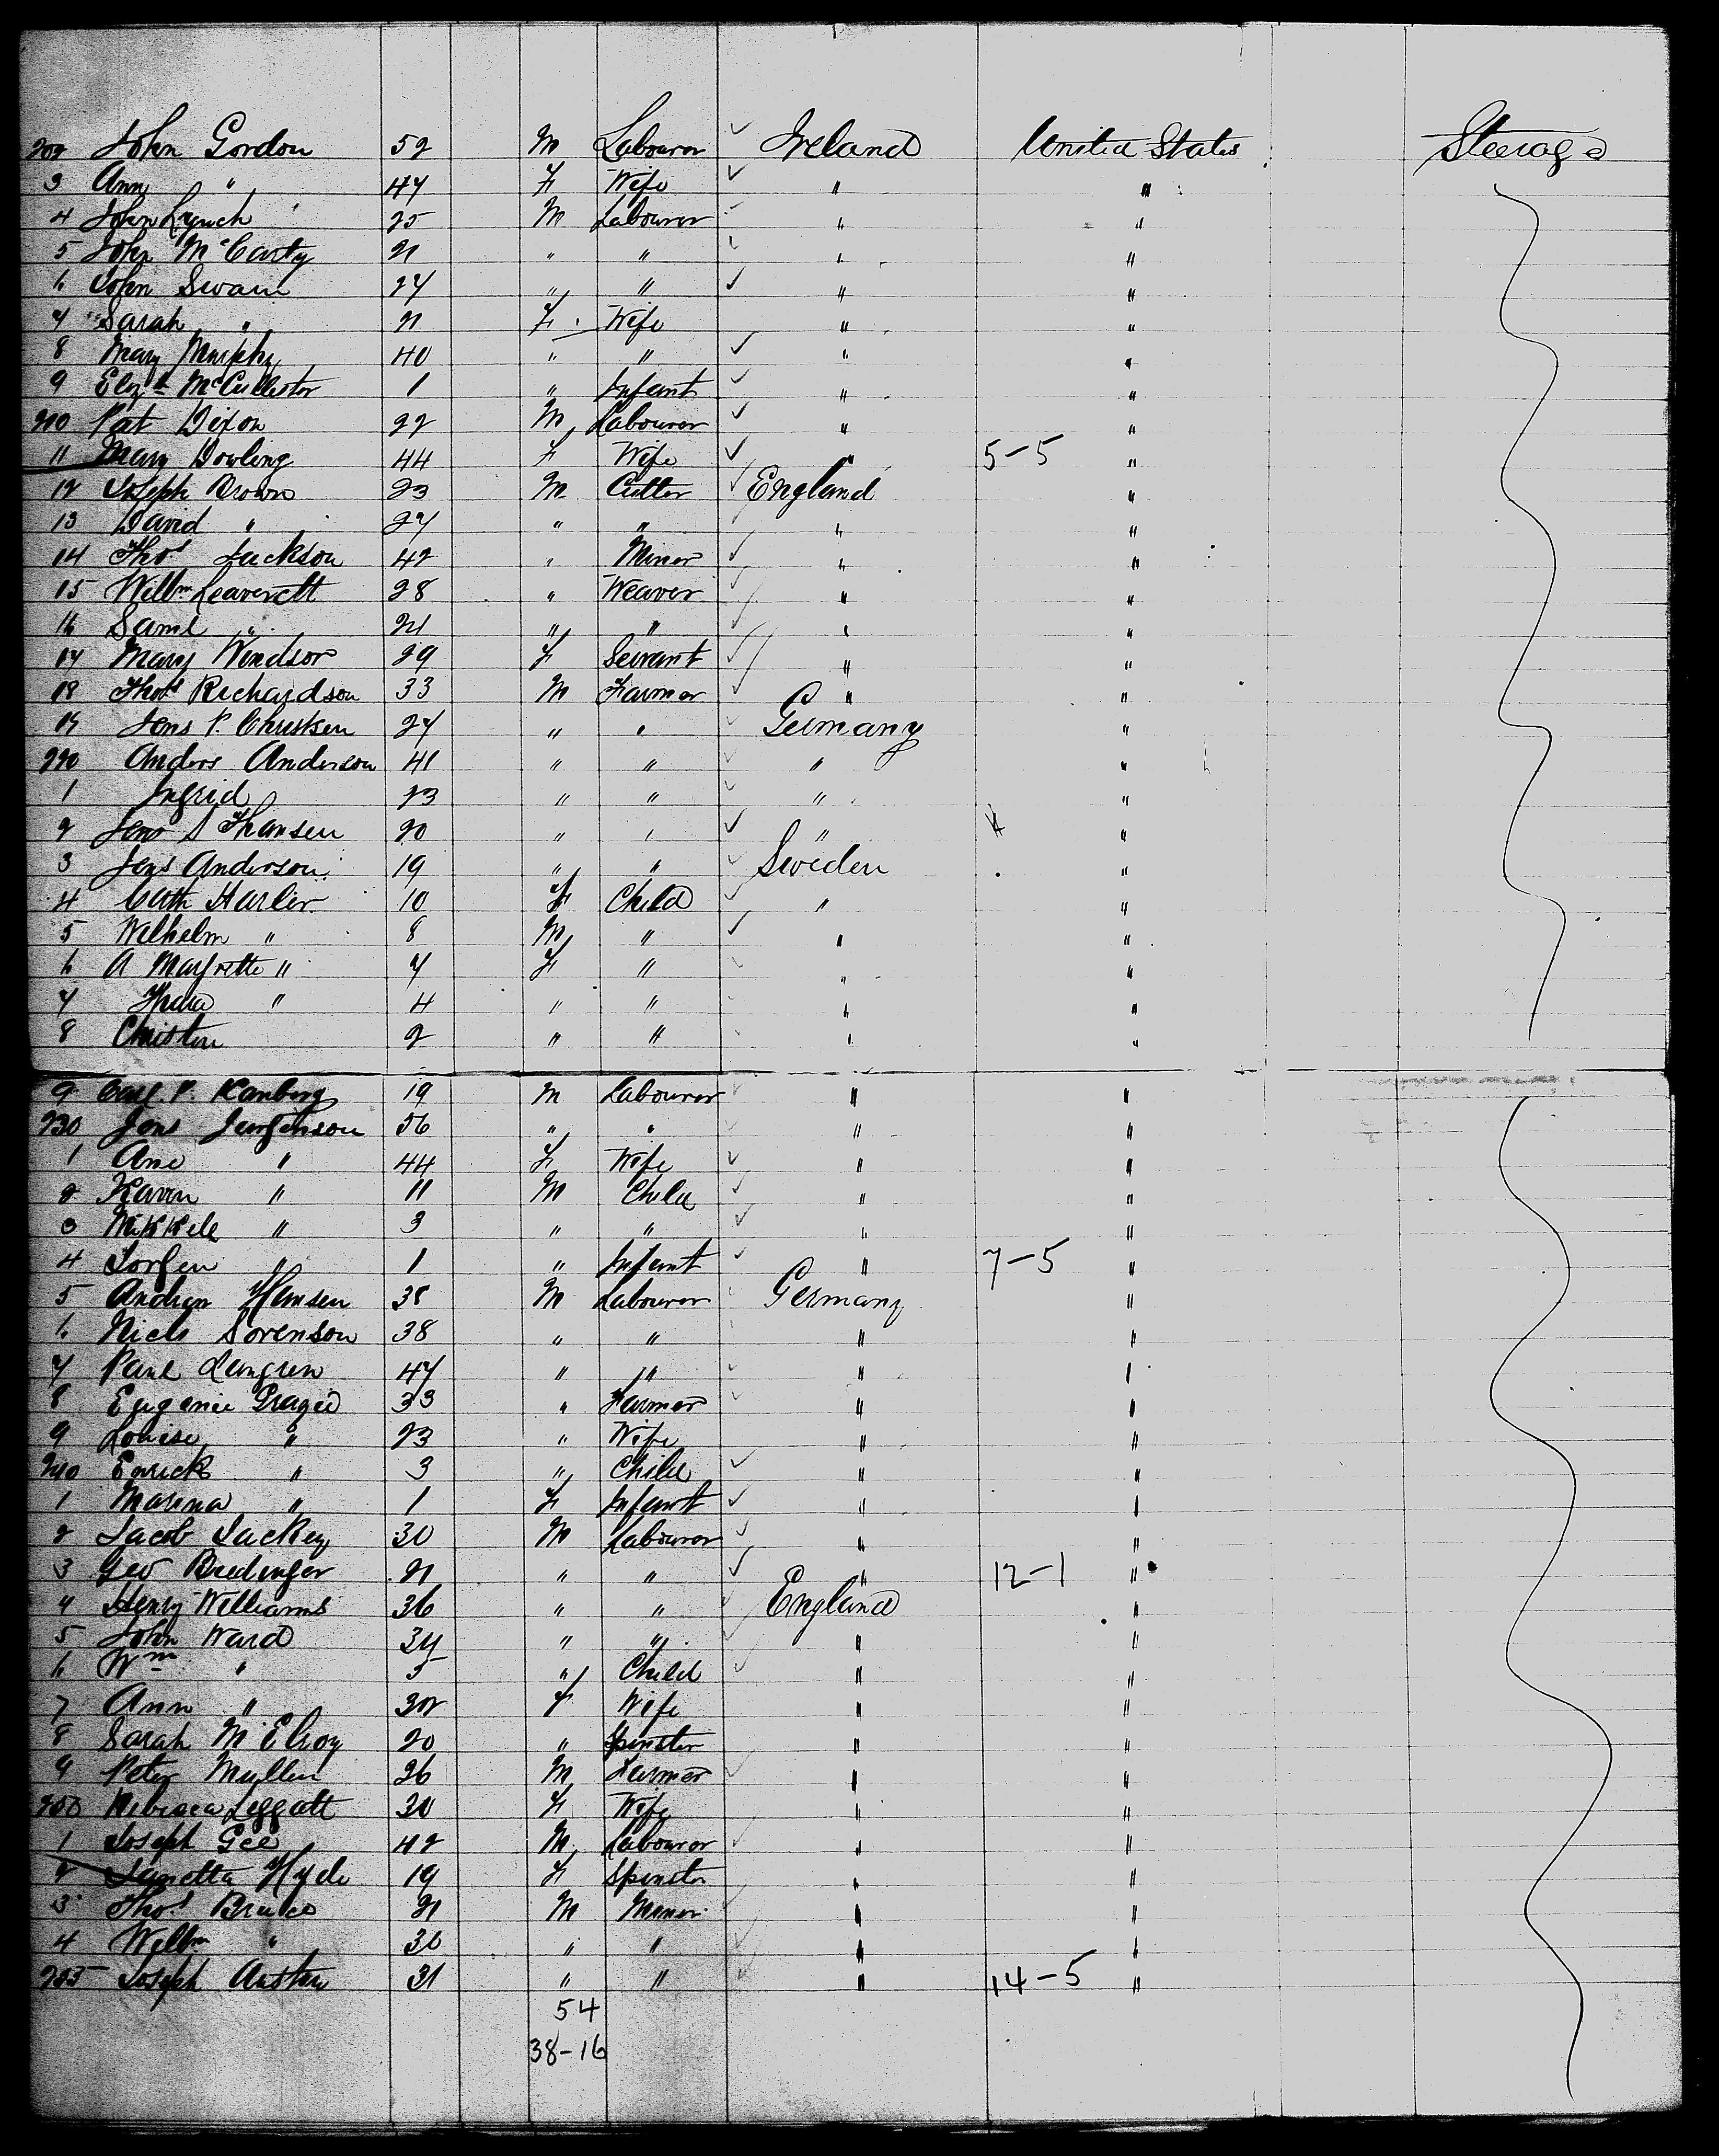 202 John Gordon 52 M Labourer Ireland United States Steerage
3 Ann " 47 F Wife " "
4 John Lynch 25 M Labourer " "
5 John McCarty 21 " " " "
6 John Swain 27 " " " "
7 Sarah " 21 F Wife " "
8 Mary Murphy 40 " " " "
9 Elizth 1 " Infant " "
210 Pat Dixon 22 M Labourer " "
11 Mary Dowling 44 F Wife " 5-5 "
12 Joseph Brown 23 M Cutler England "
13 David " 27 " " " "
14 Thos Jackson 42 " Miner " "
15 Willm Leaverett 28 " Weaver " "
16 Saml " 21 " " " "
17 Mary Windsor 29 F Servant " "
18 Thos Richardson 33 M Farmer " "
19 Jens P. Christsen 27 " " Germany "
220 Anders Anderson 41 " " " "
1 Ingrid 23 " " " "
2 Jens S Thansen 20 " " " "
3 Jens Anderson 19 " " Sweden "
4 Cath Harler 10 F Child " "
5 Wilhelm " 8 M " " "
6 A Magrette " 7 F " " "
7 " 4 " " " "
8 Christen 2 " " " "
9 Carl P. Kamberg 19 M Labourer " "
230 Jens Jurgenson 56 " " " "
1 Ane " 44 F Wife " "
2 Karen " 11 M Child " "
3 Mikkele " 3 " " " "
4 Jorgen " 1 " Infant " 7-5 "
5 Andren Hansen 38 M Labourer Germany "
6 Niels Sorenson 38 " " " "
7 Paul Langren 47 " " " "
8 Eugenie 33 " Farmer " "
9 Louise " 23 " Wife " "
240 Enrick " 3 " Child " "
1 Marina " 1 F Infant " "
2 Jacob Lackey 30 M Labourer " "
3 Geo Bredinger 21 " " " 12-1 "
4 Henry Williams 36 " " England "
5 John Ward 34 " " " "
6 Wm " 5 " Child " "
7 Ann " 32 F Wife " "
8 Sarah McElroy 20 " Spinster " "
9 Peter Mullen 26 M Farmer " "
250 Rebecca Leggatt 30 F Wife " "
1 Joseph Gee 42 M Labourer " "
2 Janetta Hyde 19 F Spinster " "
3 Thos Bruce 21 M Miner " "
4 Willm " 30 " " " "
255 Joseph Austen 31 " " " 14-5 "
54
38-16